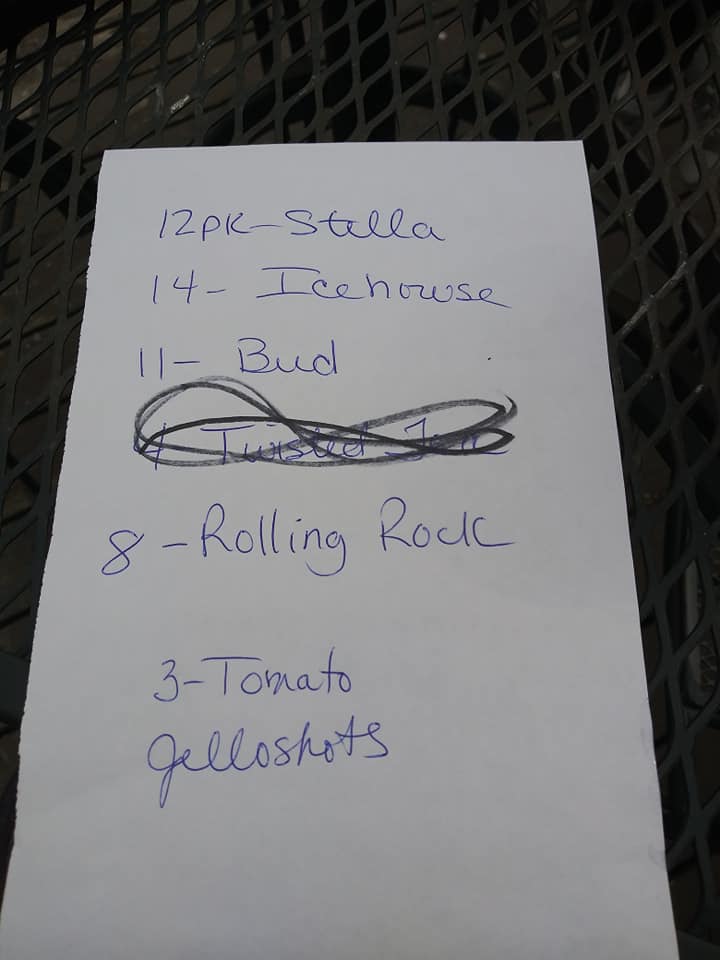 12pk-Stella
14- Icehouse
11- Bud
4 Twisted
8-Rolling Rock
3-Tomato
gelloshots